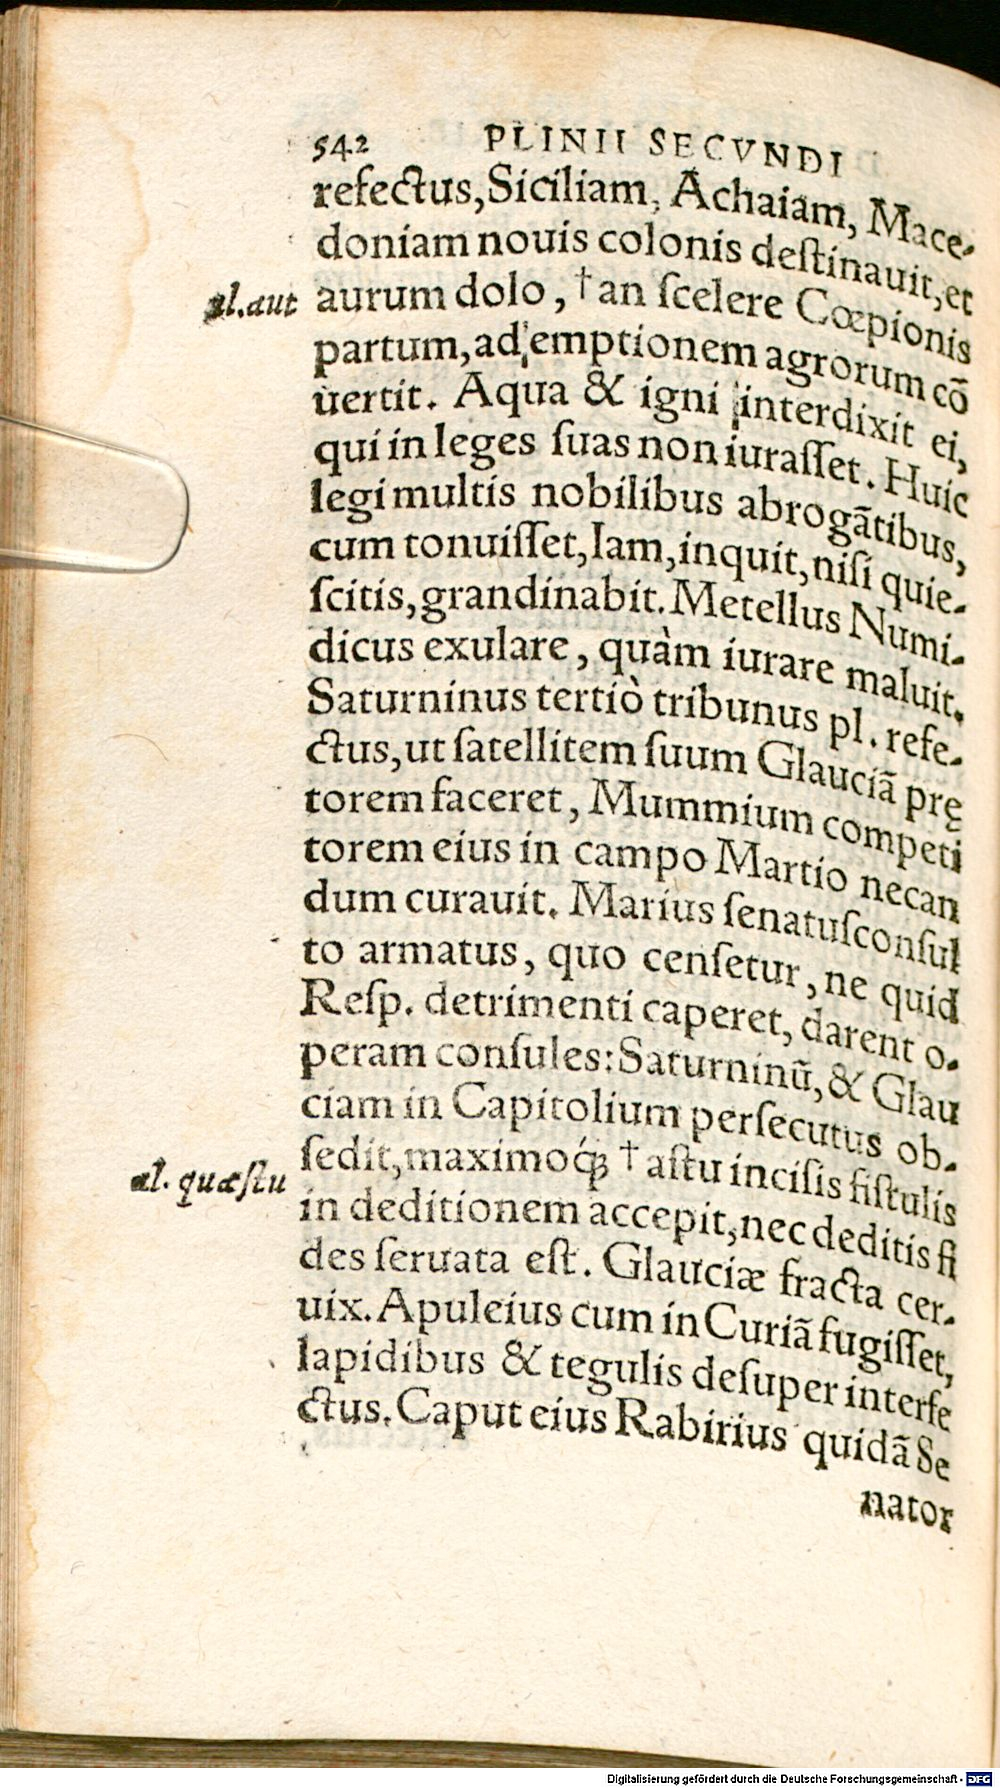 542 PLINII SECVNDI
refectus, Siciliam, Achaiam, Mace-
doniam nouis colonis destinauit, et
al. aut
aurum dolo, † an scelere Cœpionis
partum, ad emptionem agrorum cō
uertit. Aqua & igni interdixit ei,
qui in leges suas non iurasset. Huic
legi multis nobilibus abrogātibus,
cum tonuisset, Iam, inquit, nisi quie-
scitis, grandinabit. Metellus Numi-
dicus exulare, quàm iurare maluit.
Saturninus tertiò tribunus pl. refe-
ctus, ut satellitem suum Glauciā prę
torem faceret, Mummium competi
torem eius in campo Martio necan
dum curauit. Marius senatusconsul
to armatus, quo censetur, ne quid
Resp. detrimenti caperet, darent o-
peram consules: Saturninū, & Glau
ciam in Capitolium persecutus ob-
sedit, maximoq́ꝫ † astu incisis fistulis
al. quæstu
in deditionem accepit, nec deditis fi
des seruata est. Glauciæ fracta cer-
uix. Apuleius cum in Curiā fugisset,
lapidibus & tegulis desuper interfe
ctus. Caput eius Rabirius quidā Se
nator
Digitalisierung gefördert durch die Deutsche Forschungsgemeinschaft - DFG